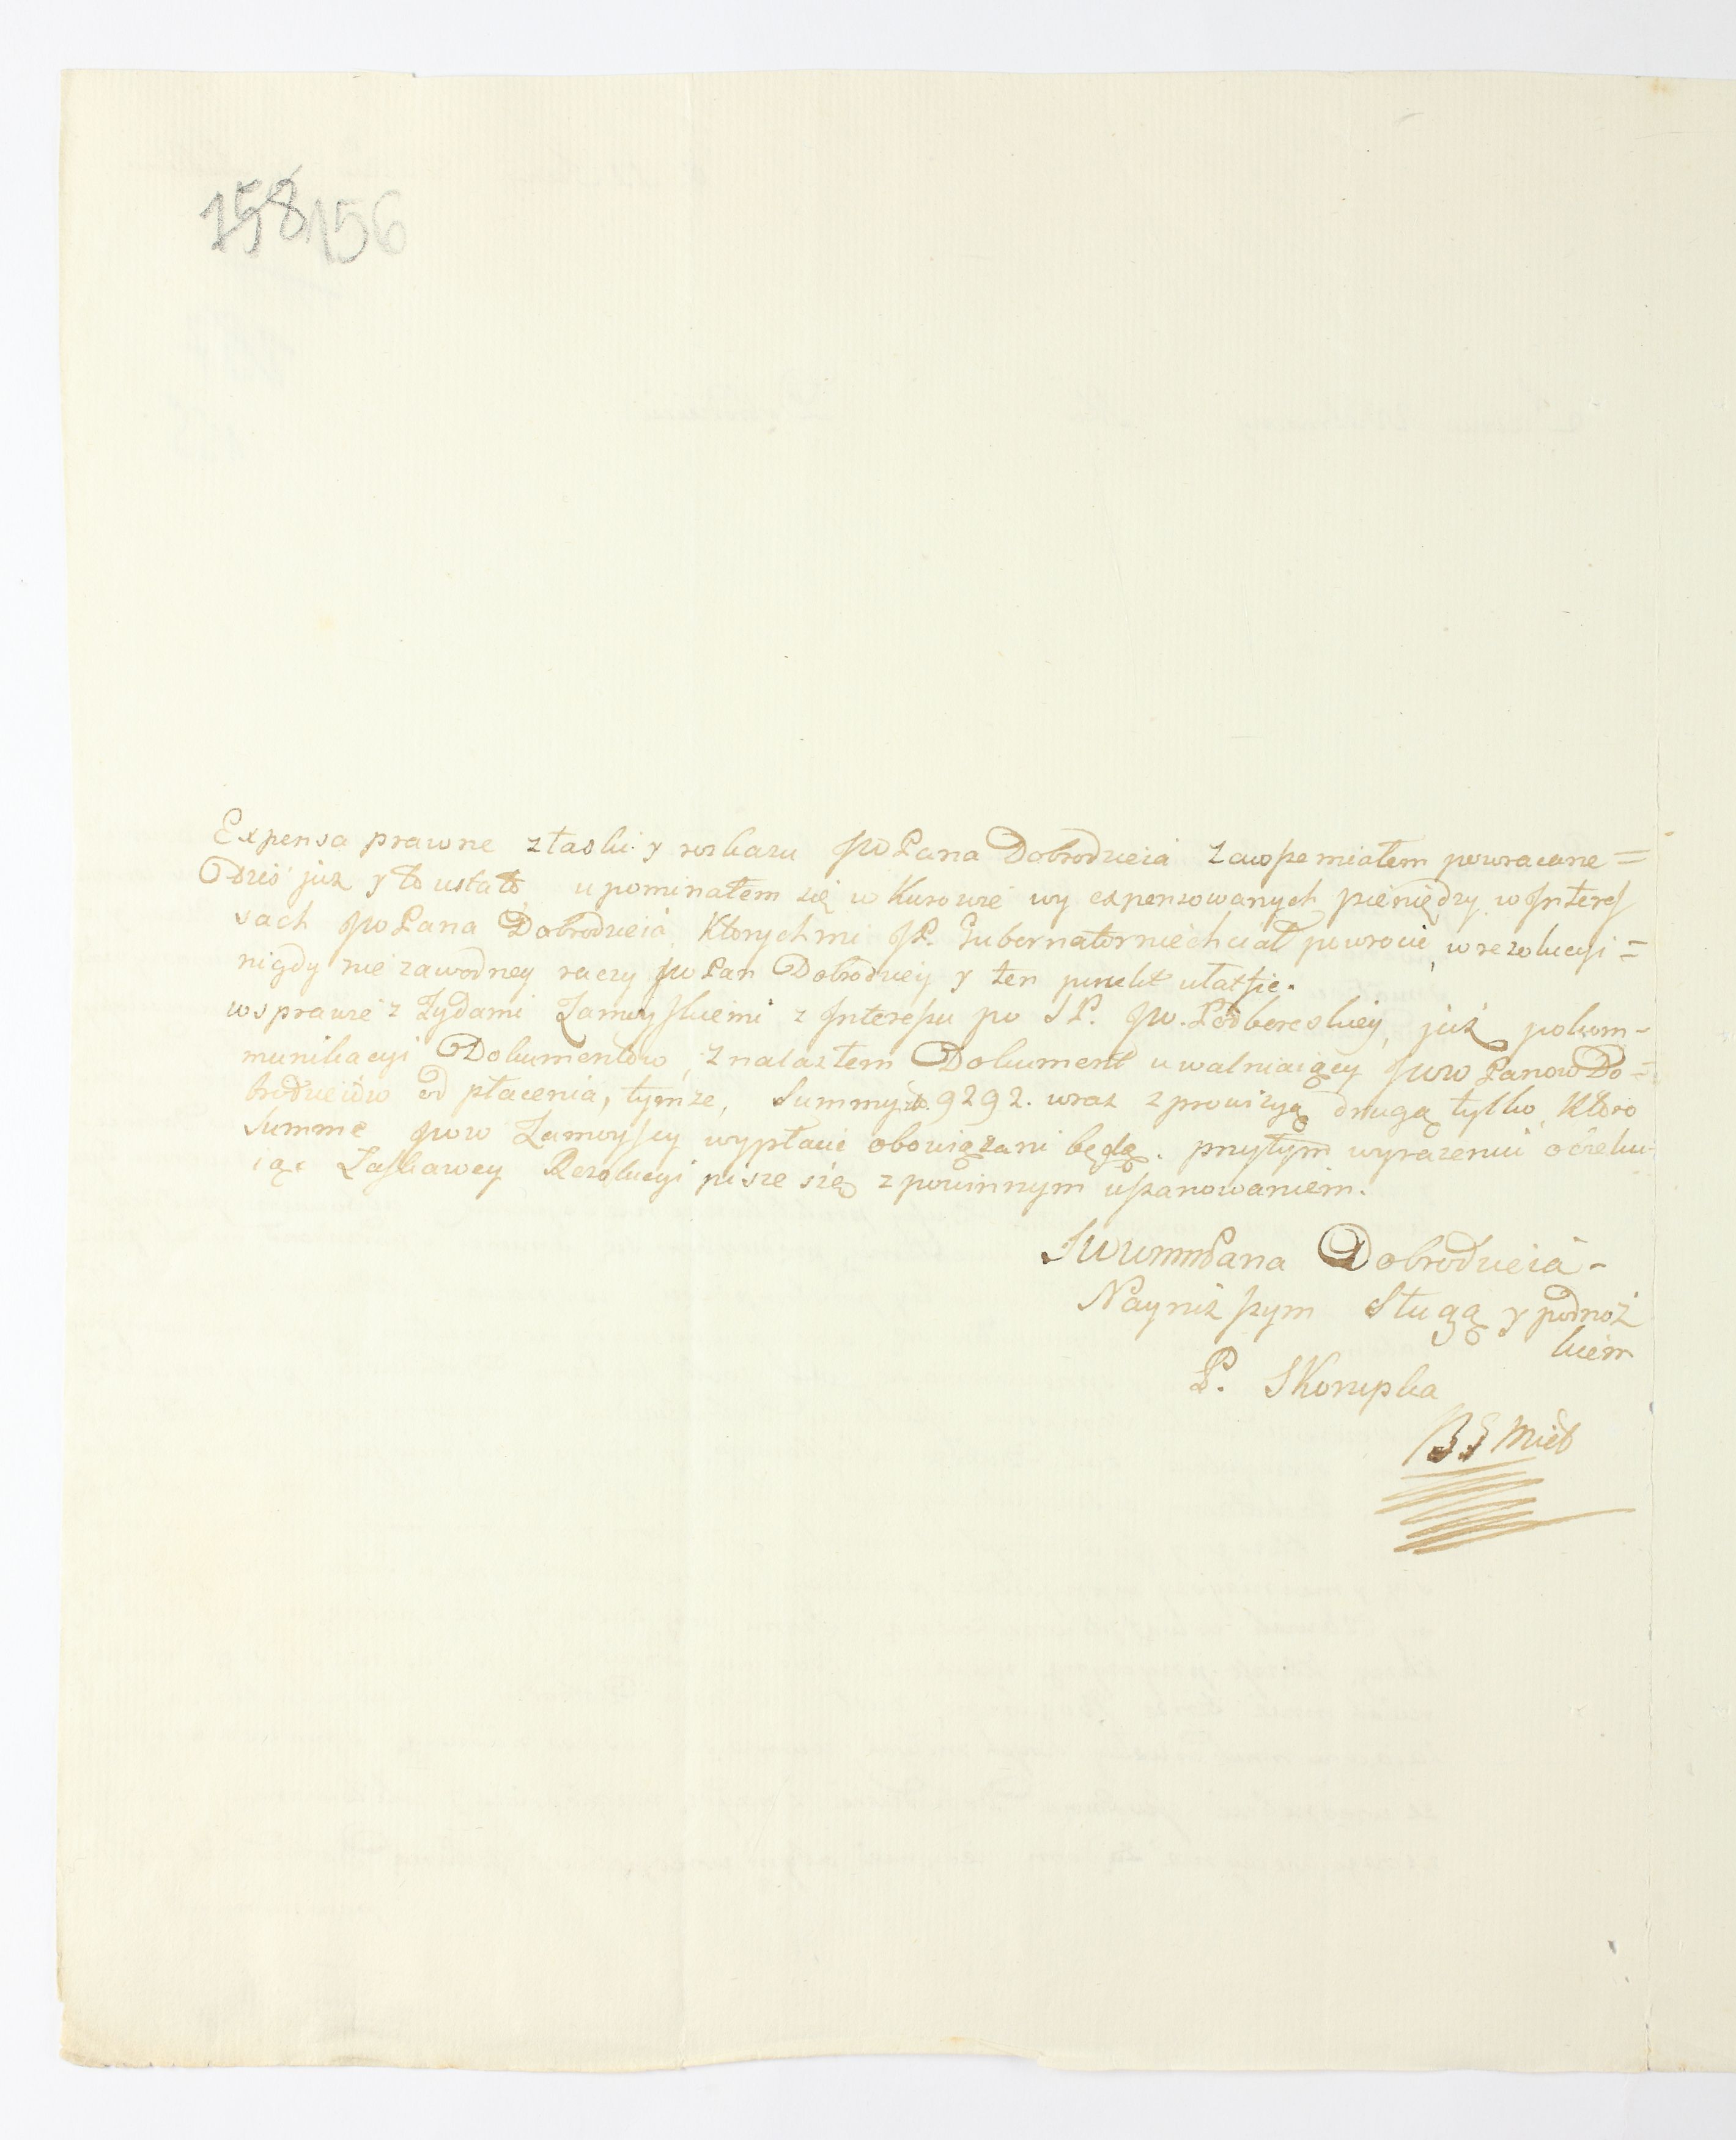 158 156
Expensa prawne z łaski y roskazu JW Pana Dobrodzieia zawsze miałem powracane =
Dziś już y to ustało, upominałem się w Kurowie wy expensowanych pieniędzy w Interes
sach JW Pana Dobrodzieia, Ktorych mi JP. Gubernator niechciał powrocić, w rezolucyi =
nigdy nie zawodney raczy JW Pan Dobrodziey y ten punkt ułatwić.
w sprawie z Żydami Zamoyskiemi z Interessu po SP. JW. Podbereskiey, już po kom-
munikacyi Dokumentów, znalazłem Dokument uwalniaiący JWW Panow Do=
brodzieiów od płacenia, tymże, Summy zł. 9292. wraz z prowizyą drugą tylko, Ktoro
Summe JWW Zamoyscy wypłacić obowiązani będą. przytym wyrazeniu oczeku-
iąc Łaskawey Rezolucyi pisze się z powinnym uszanowaniem.
JWWMMPana Dobrodzieia -
Nayniższym Sługą y podnoż
kiem
P. Skorupka
BS Mieb